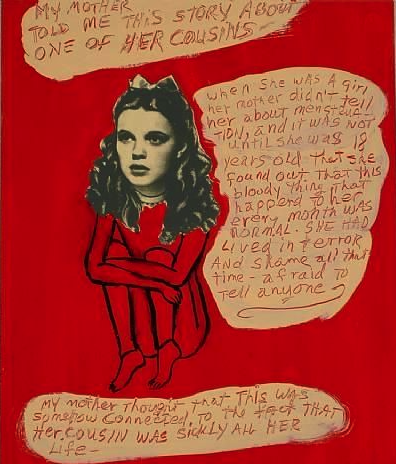 MY MOTHER
TOLD ME THIS STORY ABOUT
ONE OF HER COUSINS —
when SHe WAS A gIRL
her mother didn't tell
her about menstrua-
TION, and IT WAS NOT
until she was 18
years old that she
found out That this
bloody Thing That
happend to her
every month was
NORMAL. SHE HAD
LIVED IN TERROR
AND shame all that
time - afraid to
Tell anyone
MY mother Thought that This was
somehow connected To the fact THAT
Her COUSIN WAS SICKLY ALL HER
Life -